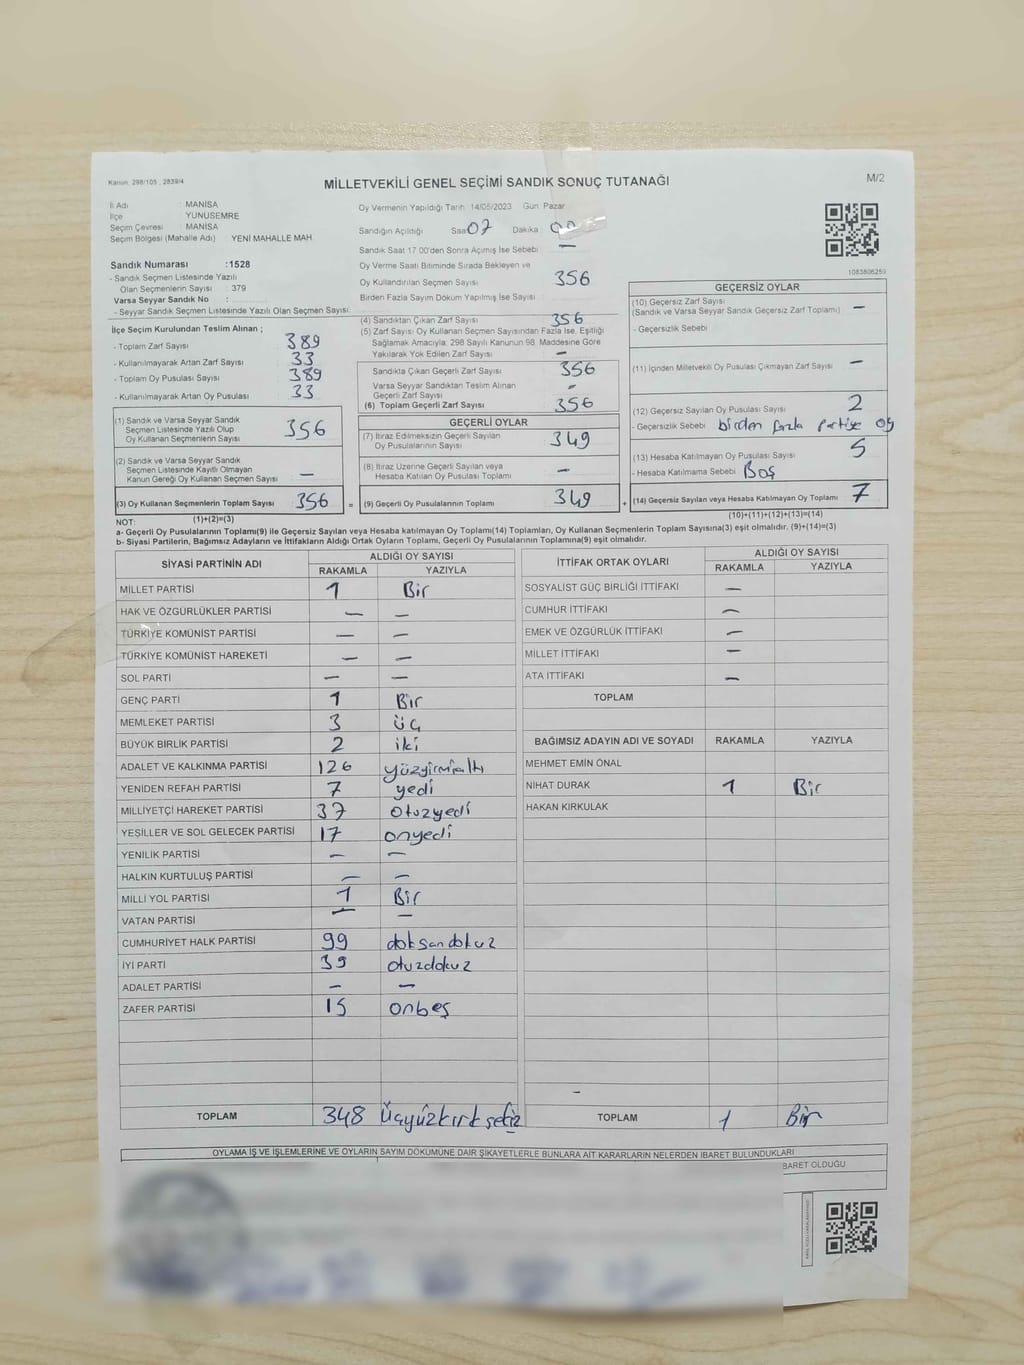 Kanun: 298/105 , 2839/4
MİLLETVEKİLİ GENEL SEÇİMİ SANDIK SONUÇ TUTANAĞI
M/2
İl Adı : MANİSA
İlçe : YUNUSEMRE
Seçim Çevresi : MANİSA
Seçim Bölgesi (Mahalle Adı) : YENİ MAHALLE MAH.
Sandık Numarası :1528
- Sandık Seçmen Listesinde Yazılı
Olan Seçmenlerin Sayısı : 379
Varsa Seyyar Sandık No :
- Seyyar Sandık Seçmen Listesinde Yazılı Olan Seçmen Sayısı:
Oy Vermenin Yapıldığı Tarih: 14/05/2023 Gün: Pazar
Sandığın Açıldığı Saat 07 Dakika :
Sandık Saat 17.00'den Sonra Açılmış İse Sebebi : —
Oy Verme Saati Bitiminde Sırada Bekleyen ve
Oy Kullandırılan Seçmen Sayısı 356
Birden Fazla Sayım Döküm Yapılmış İse Sayısı :
1083806259
İlçe Seçim Kurulundan Teslim Alınan ;
- Toplam Zarf Sayısı 389
- Kullanılmayarak Artan Zarf Sayısı 33
- Toplam Oy Pusulası Sayısı 389
- Kullanılmayarak Artan Oy Pusulası 33
(1) Sandık ve Varsa Seyyar Sandık
Seçmen Listesinde Yazılı Olup
Oy Kullanan Seçmenlerin Sayısı 356
(2) Sandık ve Varsa Seyyar Sandık
Seçmen Listesinde Kayıtlı Olmayan
Kanun Gereği Oy Kullanan Seçmen Sayısı —
(3) Oy Kullanan Seçmenlerin Toplam Sayısı 356 =
(1)+(2)=(3)
(4) Sandıktan Çıkan Zarf Sayısı 356
(5) Zarf Sayısı Oy Kullanan Seçmen Sayısından Fazla İse, Eşitliği
Sağlamak Amacıyla; 298 Sayılı Kanunun 98. Maddesine Göre
Yakılarak Yok Edilen Zarf Sayısı —
Sandıkta Çıkan Geçerli Zarf Sayısı 356
Varsa Seyyar Sandıktan Teslim Alınan
Geçerli Zarf Sayısı -
(6) Toplam Geçerli Zarf Sayısı 356
GEÇERLİ OYLAR
(7) İtiraz Edilmeksizin Geçerli Sayılan
Oy Pusulalarının Sayısı 349
(8) İtiraz Üzerine Geçerli Sayılan veya
Hesaba Katılan Oy Pusulası Toplamı —
(9) Geçerli Oy Pusulalarının Toplamı 349 +
GEÇERSİZ OYLAR
(10) Geçersiz Zarf Sayısı
(Sandık ve Varsa Seyyar Sandık Geçersiz Zarf Toplamı) —
- Geçersizlik Sebebi
(11) İçinden Milletvekili Oy Pusulası Çıkmayan Zarf Sayısı —
(12) Geçersiz Sayılan Oy Pusulası Sayısı 2
- Geçersizlik Sebebi birden fazla partiye oy
(13) Hesaba Katılmayan Oy Pusulası Sayısı 5
- Hesaba Katılmama Sebebi Boş
(14) Geçersiz Sayılan veya Hesaba Katılmayan Oy Toplamı 7
(10)+(11)+(12)+(13)=(14)
NOT:
a- Geçerli Oy Pusulalarının Toplamı(9) ile Geçersiz Sayılan veya Hesaba katılmayan Oy Toplamı(14) Toplamları, Oy Kullanan Seçmenlerin Toplam Sayısına(3) eşit olmalıdır. (9)+(14)=(3)
b- Siyasi Partilerin, Bağımsız Adayların ve İttifakların Aldığı Ortak Oyların Toplamı, Geçerli Oy Pusulalarının Toplamına(9) eşit olmalıdır.
SİYASİ PARTİNİN ADI ALDIĞI OY SAYISI
RAKAMLA YAZIYLA
MİLLET PARTİSİ 1 Bir
HAK VE ÖZGÜRLÜKLER PARTİSİ — —
TÜRKİYE KOMÜNİST PARTİSİ — —
TÜRKİYE KOMÜNİST HAREKETİ — —
SOL PARTİ — —
GENÇ PARTİ 1 Bir
MEMLEKET PARTİSİ 3 üç
BÜYÜK BİRLİK PARTİSİ 2 iki
ADALET VE KALKINMA PARTİSİ 126 yüzyirmialtı
YENİDEN REFAH PARTİSİ 7 yedi
MİLLİYETÇİ HAREKET PARTİSİ 37 otuzyedi
YEŞİLLER VE SOL GELECEK PARTİSİ 17 onyedi
YENİLİK PARTİSİ — —
HALKIN KURTULUŞ PARTİSİ — —
MİLLİ YOL PARTİSİ 1 Bir
VATAN PARTİSİ — —
CUMHURİYET HALK PARTİSİ 99 doksandokuz
İYİ PARTİ 39 otuzdokuz
ADALET PARTİSİ — —
ZAFER PARTİSİ 15 onbeş
TOPLAM 348 Üçyüzkırksekiz
İTTİFAK ORTAK OYLARI ALDIĞI OY SAYISI
RAKAMLA YAZIYLA
SOSYALİST GÜÇ BİRLİĞİ İTTİFAKI —
CUMHUR İTTİFAKI —
EMEK VE ÖZGÜRLÜK İTTİFAKI —
MİLLET İTTİFAKI —
ATA İTTİFAKI —
TOPLAM
BAĞIMSIZ ADAYIN ADI VE SOYADI RAKAMLA YAZIYLA
MEHMET EMİN ÖNAL
NİHAT DURAK 1 Bir
HAKAN KIRKULAK
TOPLAM 1 Bir
OYLAMA İŞ VE İŞLEMLERİNE VE OYLARIN SAYIM DÖKÜMÜNE DAİR ŞİKAYETLERLE BUNLARA AİT KARARLARIN NELERDEN İBARET BULUNDUKLARI
BARET OLDUĞU